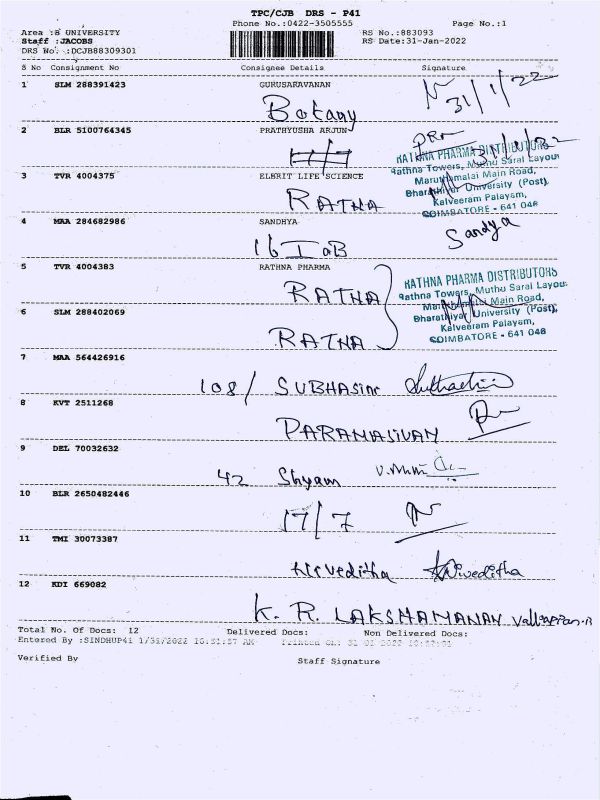 TPC/CJB DRS - P41
Phone No.:0422-3505555 Page No.:1
Area :B UNIVERSITY RS No.:883093
Staff :JACOBS RS Date:31-Jan-2022
DRS No. :DCJB88309301
S No Consignment No Consignee Details Signature
1 SLM 288391423 GURUSARAVANAN
Botany 31/1/22
2 BLR 5100764345 PRATHYUSHA ARJUN
31/1/22
RATHNA PHARMA DISTRIBUTORS
Rathna Towers, Muthu Saral Layout
Maruthamalai Main Road,
Bharathiyar University (Post),
Kalveeram Palayam,
COIMBATORE - 641 046
3 TVR 4004375 ELBRIT LIFE SCIENCE
RATNA
4 MAA 284682986 SANDHYA
Sandya
5 TVR 4004383 RATHNA PHARMA
RATNA
RATHNA PHARMA DISTRIBUTORS
Rathna Towers, Muthu Saral Layout
Maruthamalai Main Road,
Bharathiyar University (Post),
Kalveeram Palayam,
COIMBATORE - 641 046
6 SLM 288402069
RATNA
7 MAA 564426916
108/ SUBHASINI
8 KVT 2511268
PARAMASIVAM
9 DEL 70032632
42 Shyam
10 BLR 2650482446
17/7
11 TMI 30073387
Niveditha Niveditha
12 KDI 669082
K. R. LAKSHAMANAN Valliappan.R
Total No. Of Docs: 12 Delivered Docs: Non Delivered Docs:
Entered By :SINDHUP41 1/31/2022
Verified By Staff Signature